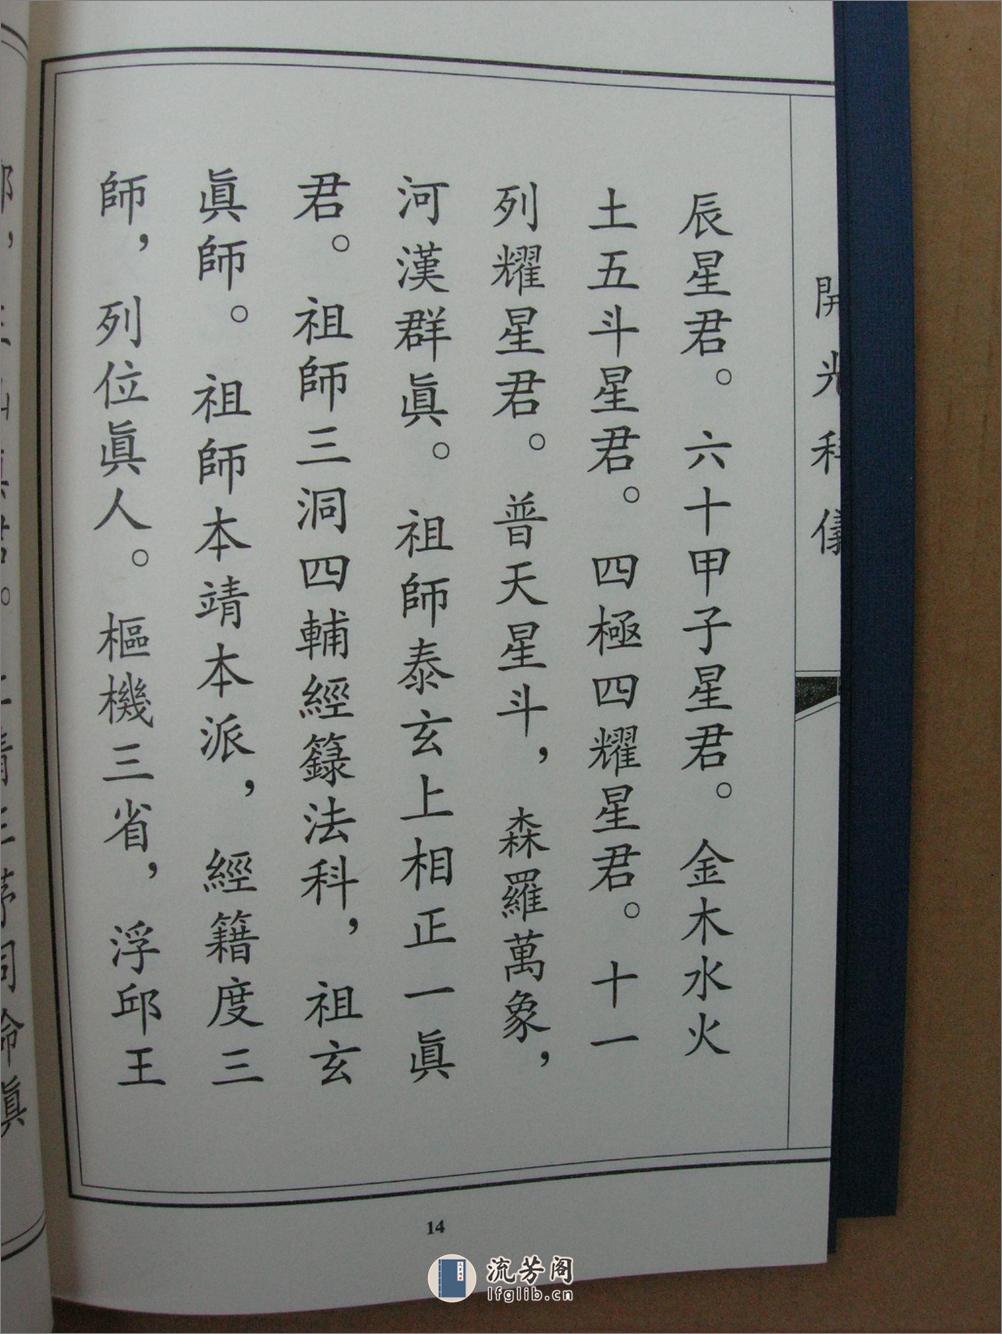 開光科儀
辰星君。六十甲子星君。金木水火
土五斗星君。四極四耀星君。十一
列耀星君。普天星斗，森羅萬象，
河漢群眞。祖師泰玄上相正一眞
君。祖師三洞四輔經籙法科，祖玄
眞師。祖師本靖本派，經籍度三
師，列位眞人。樞機三省，浮邱王
14
流芳阁
lfglib.cn